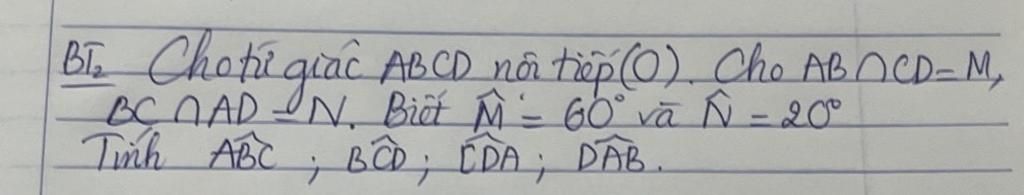 BT₂ Cho tứ giác ABCD nội tiếp (O). Cho AB ∩ CD = M,
BC ∩ AD = N. Biết M̂ = 60° và N̂ = 20°
Tính ABC ; BCD ; CDA ; DAB.